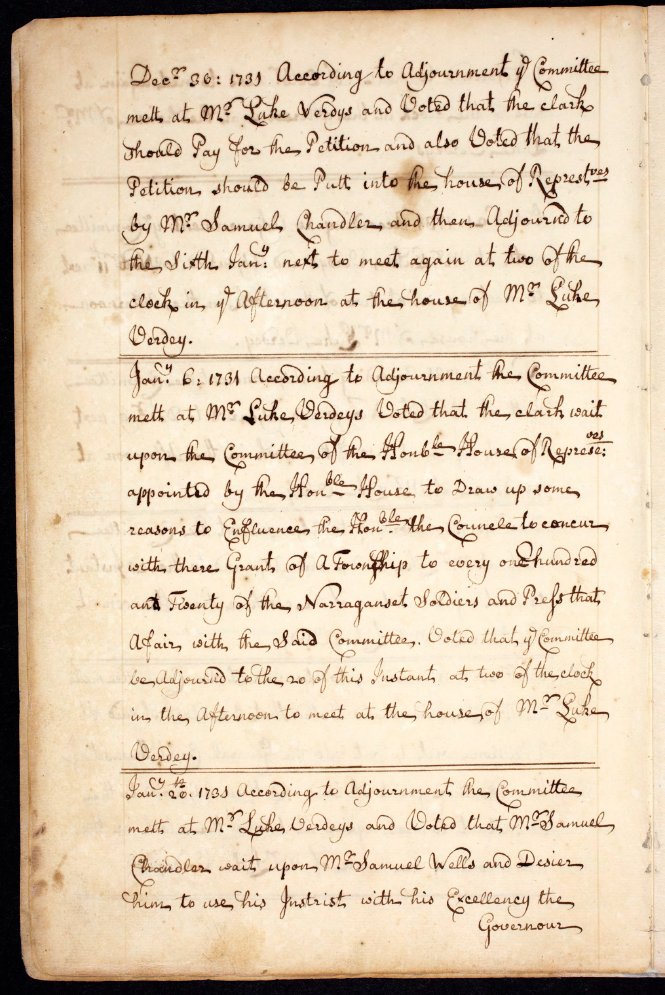 Decr 30: 1731 According to Adjournment ye Committee
mett at Mr Luke Verdys and Voted that the clark
should Pay for the Petition and also Voted that the
Petition should be Putt into the house of Represtves
by Mr Samuel Chandler and then Adjournd to
the Sixth Jany next to meet again at two of the
clock in ye Afternoon at the house of Mr Luke
Verdey.
Jany 6: 1731 According to Adjournment the Committee
mett at Mr Luke Verdeys Voted that the clark wait
upon the Committee of the Honble House of Represe:ves
appointed by the Honble House to Draw up some
reasons to Enfluence the Honble the Councle to concur
with there Grant of A Township to every one hundred
and Twenty of the Narraganset Soldiers and Press that
Afair with the Said Committee. Voted that ye Committee
be Adjournd to the 20 of this Instant at two of the clock
in the Afternoon to meet at the house of Mr Luke
Verdey.
Jany 20th. 1731 According to Adjournment the Committee
mett at Mr Luke Verdeys and Voted that Mr Samuel
Chandler wait upon Mr Samuel Wells and Desier
him to use his Intrist with his Excellency the
Governour